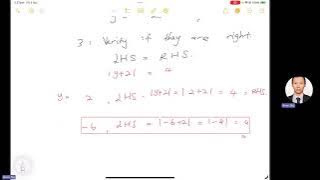 3: Verify if they are right.
LHS = RHS.
|y+2| = 4
y= 2, LHS = |y+2| = |2+2| = 4 = RHS.
-6, LHS = |-6+2| = |-4| = 4